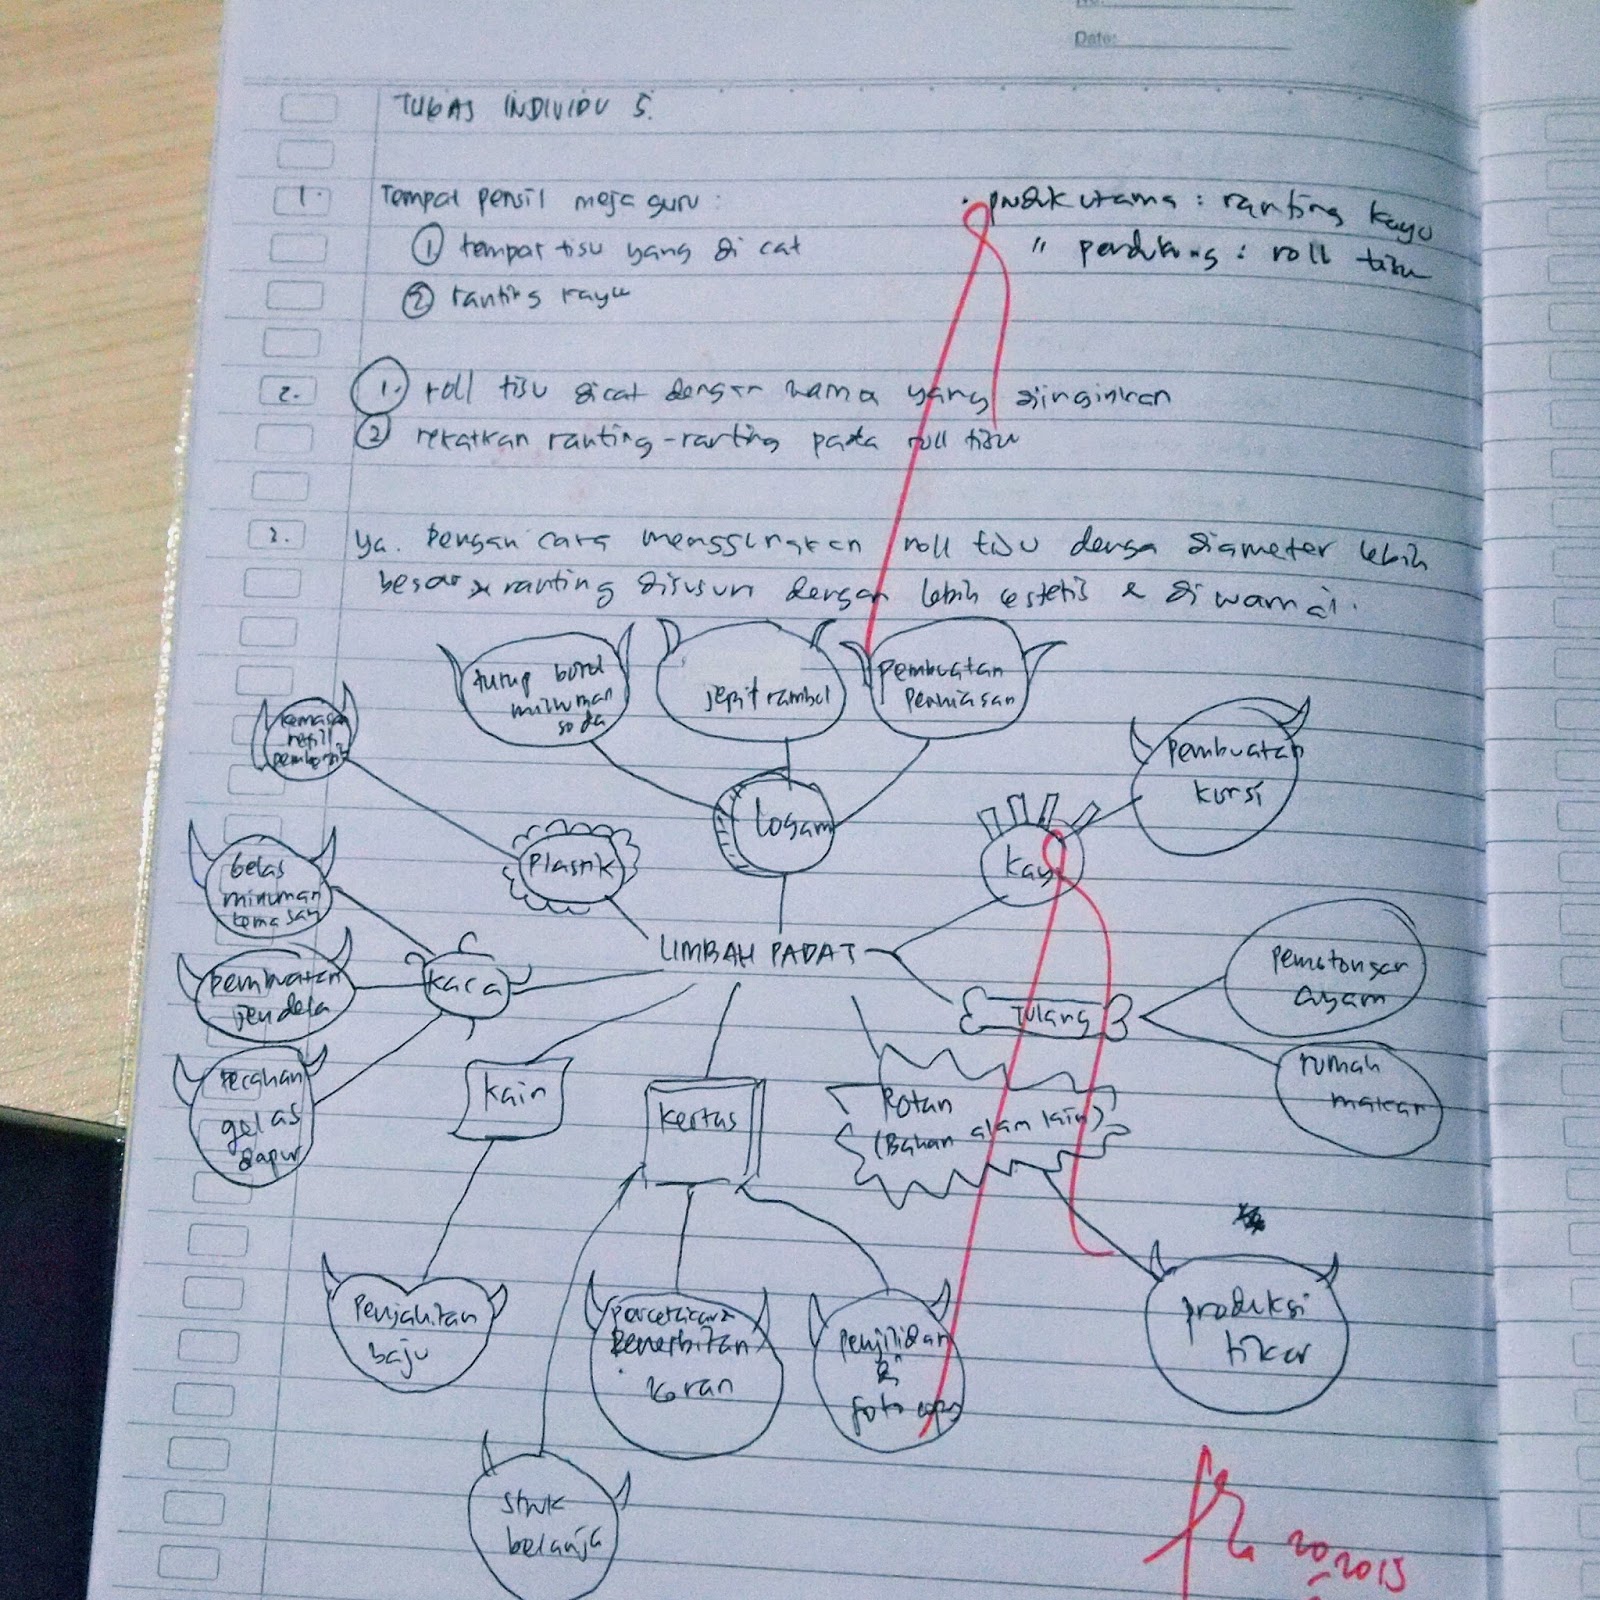 Date:
TUGAS INDIVIDU 5.
1. Tempat pensil meja guru :
① tempat tisu yang di cat
② ranting kayu
• produk utama : ranting kayu
" pendukung : roll tisu
2. ① roll tisu dicat dengan warna yang diinginkan
② rekatkan ranting-ranting pada roll tisu
3. Ya. Dengan cara menggunakan roll tisu denga diameter lebih
besar & ranting disusun dengan lebih estetis & di warnai.
tutup botol
minuman
soda
jepit rambut
pembuatan
perhiasan
kemasan
refill
pembuatan
kursi
logam
Plastik
kayu
gelas
minuman
kemasan
LIMBAH PADAT
pemotongan
ayam
kaca
pembuatan
jendela
Tulang
rumah
makan
pecahan
gelas
dapur
kain
kertas
Rotan
(Bahan alam lain)
penjahitan
baju
percetakan
penerbitan
koran
penjilidan
&
foto copy
produksi
tikar
struk
belanja
20
2015